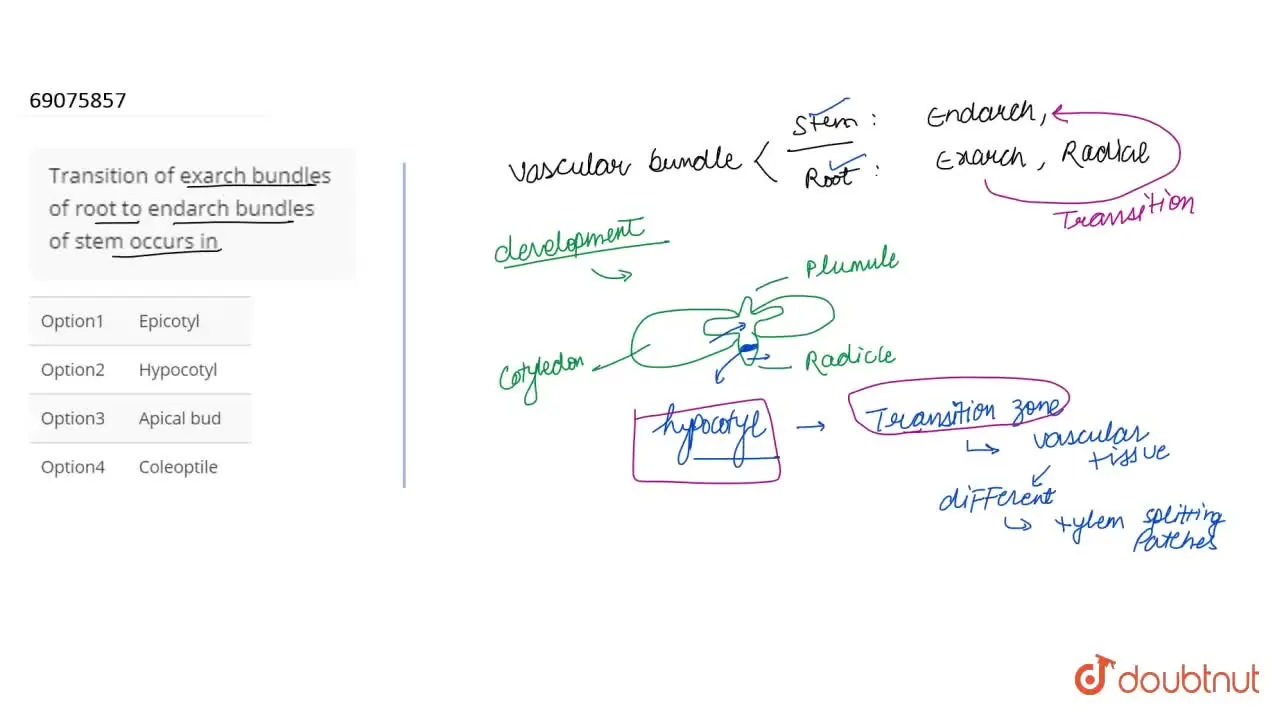 69075857
Transition of exarch bundles
of root to endarch bundles
of stem occurs in
Option1 Epicotyl
Option2 Hypocotyl
Option3 Apical bud
Option4 Coleoptile
Vascular bundle
Stem : Endarch,
Root : Exarch, Radial
Transition
development
Plumule
Cotyledon
Radicle
hypocotyl → Transition zone
vascular
tissue
different
xylem splitting
Patches
doubtnut